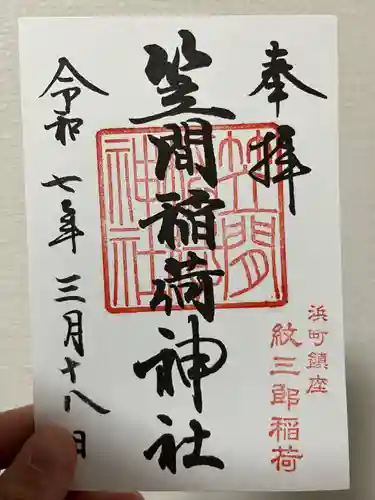 奉拝
浜町鎮座
紋三郎稲荷
笠間稲荷神社
笠間
稲荷
神社
令和七年三月十八日